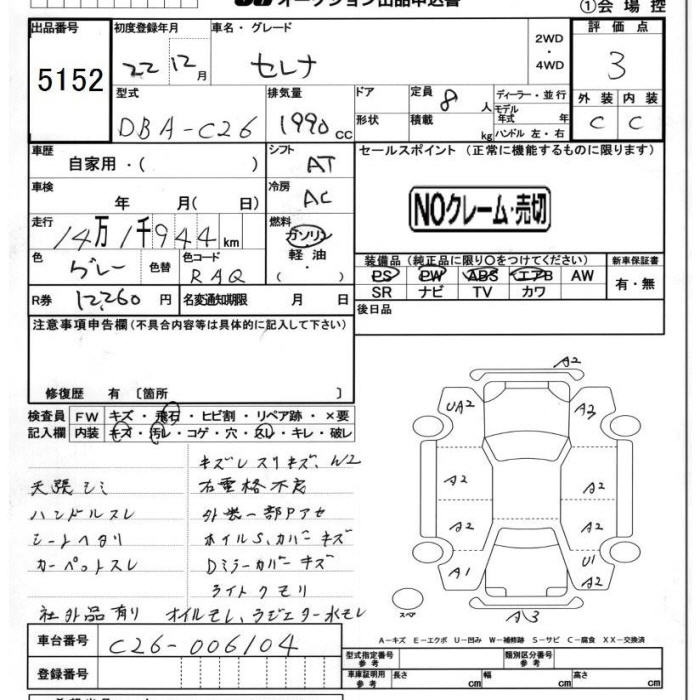 オークション出品申込書
①会場控
出品番号 初度登録年月 車名・グレード 2WD・4WD 評価点
5152 22 12月 セレナ 3
型式 排気量 ドア 定員 8人 ディーラー・並行 外装 内装
DBA-C26 1990cc 形状 積載 kg モデル年式 年 ハンドル 左・右 C C
車歴 シフト セールスポイント (正常に機能するものに限ります)
自家用・( ) AT
車検 冷房
年 月( 日) AC NOクレーム・売切
走行 燃料
14万1千944km ガソリン
色 色替 色コード 軽油 装備品(純正品に限り○をつけてください) 新車保証書
グレー RAQ ・( ) PS PW ABS エアB AW 有・無
R券 12,260円 名変通知期限 月 日 SR ナビ TV カワ
注意事項申告欄(不具合内容等は具体的に記入して下さい) 後日品
A2
修復歴 有 〔箇所 〕
UA2 A2
検査員 FW キズ・飛石・ヒビ割・リペア跡・×要
記入欄 内装 キズ・汚レ・コゲ・穴・スレ・キレ・破レ
キズレスリキズ、W2
A2 A2
天張シミ 右重格不良
ハンドルスレ 外装一部Pアセ
A2 A2
シートヘタリ ホイルS、カバーキズ
カーペットスレ Dミラーカバーキズ
A1 U1 A2
ライトクモリ
社外品有り オイルモレ、ラジエター水モレ
スペア A3
A-キズ E-エクボ U-凹み W-補修跡 S-サビ C-腐食 XX-交換済
車台番号 C26-006104
型式指定番号 参考 類別区分番号 参考
登録番号 車庫証明用 参考 長さ cm 幅 cm 高さ cm